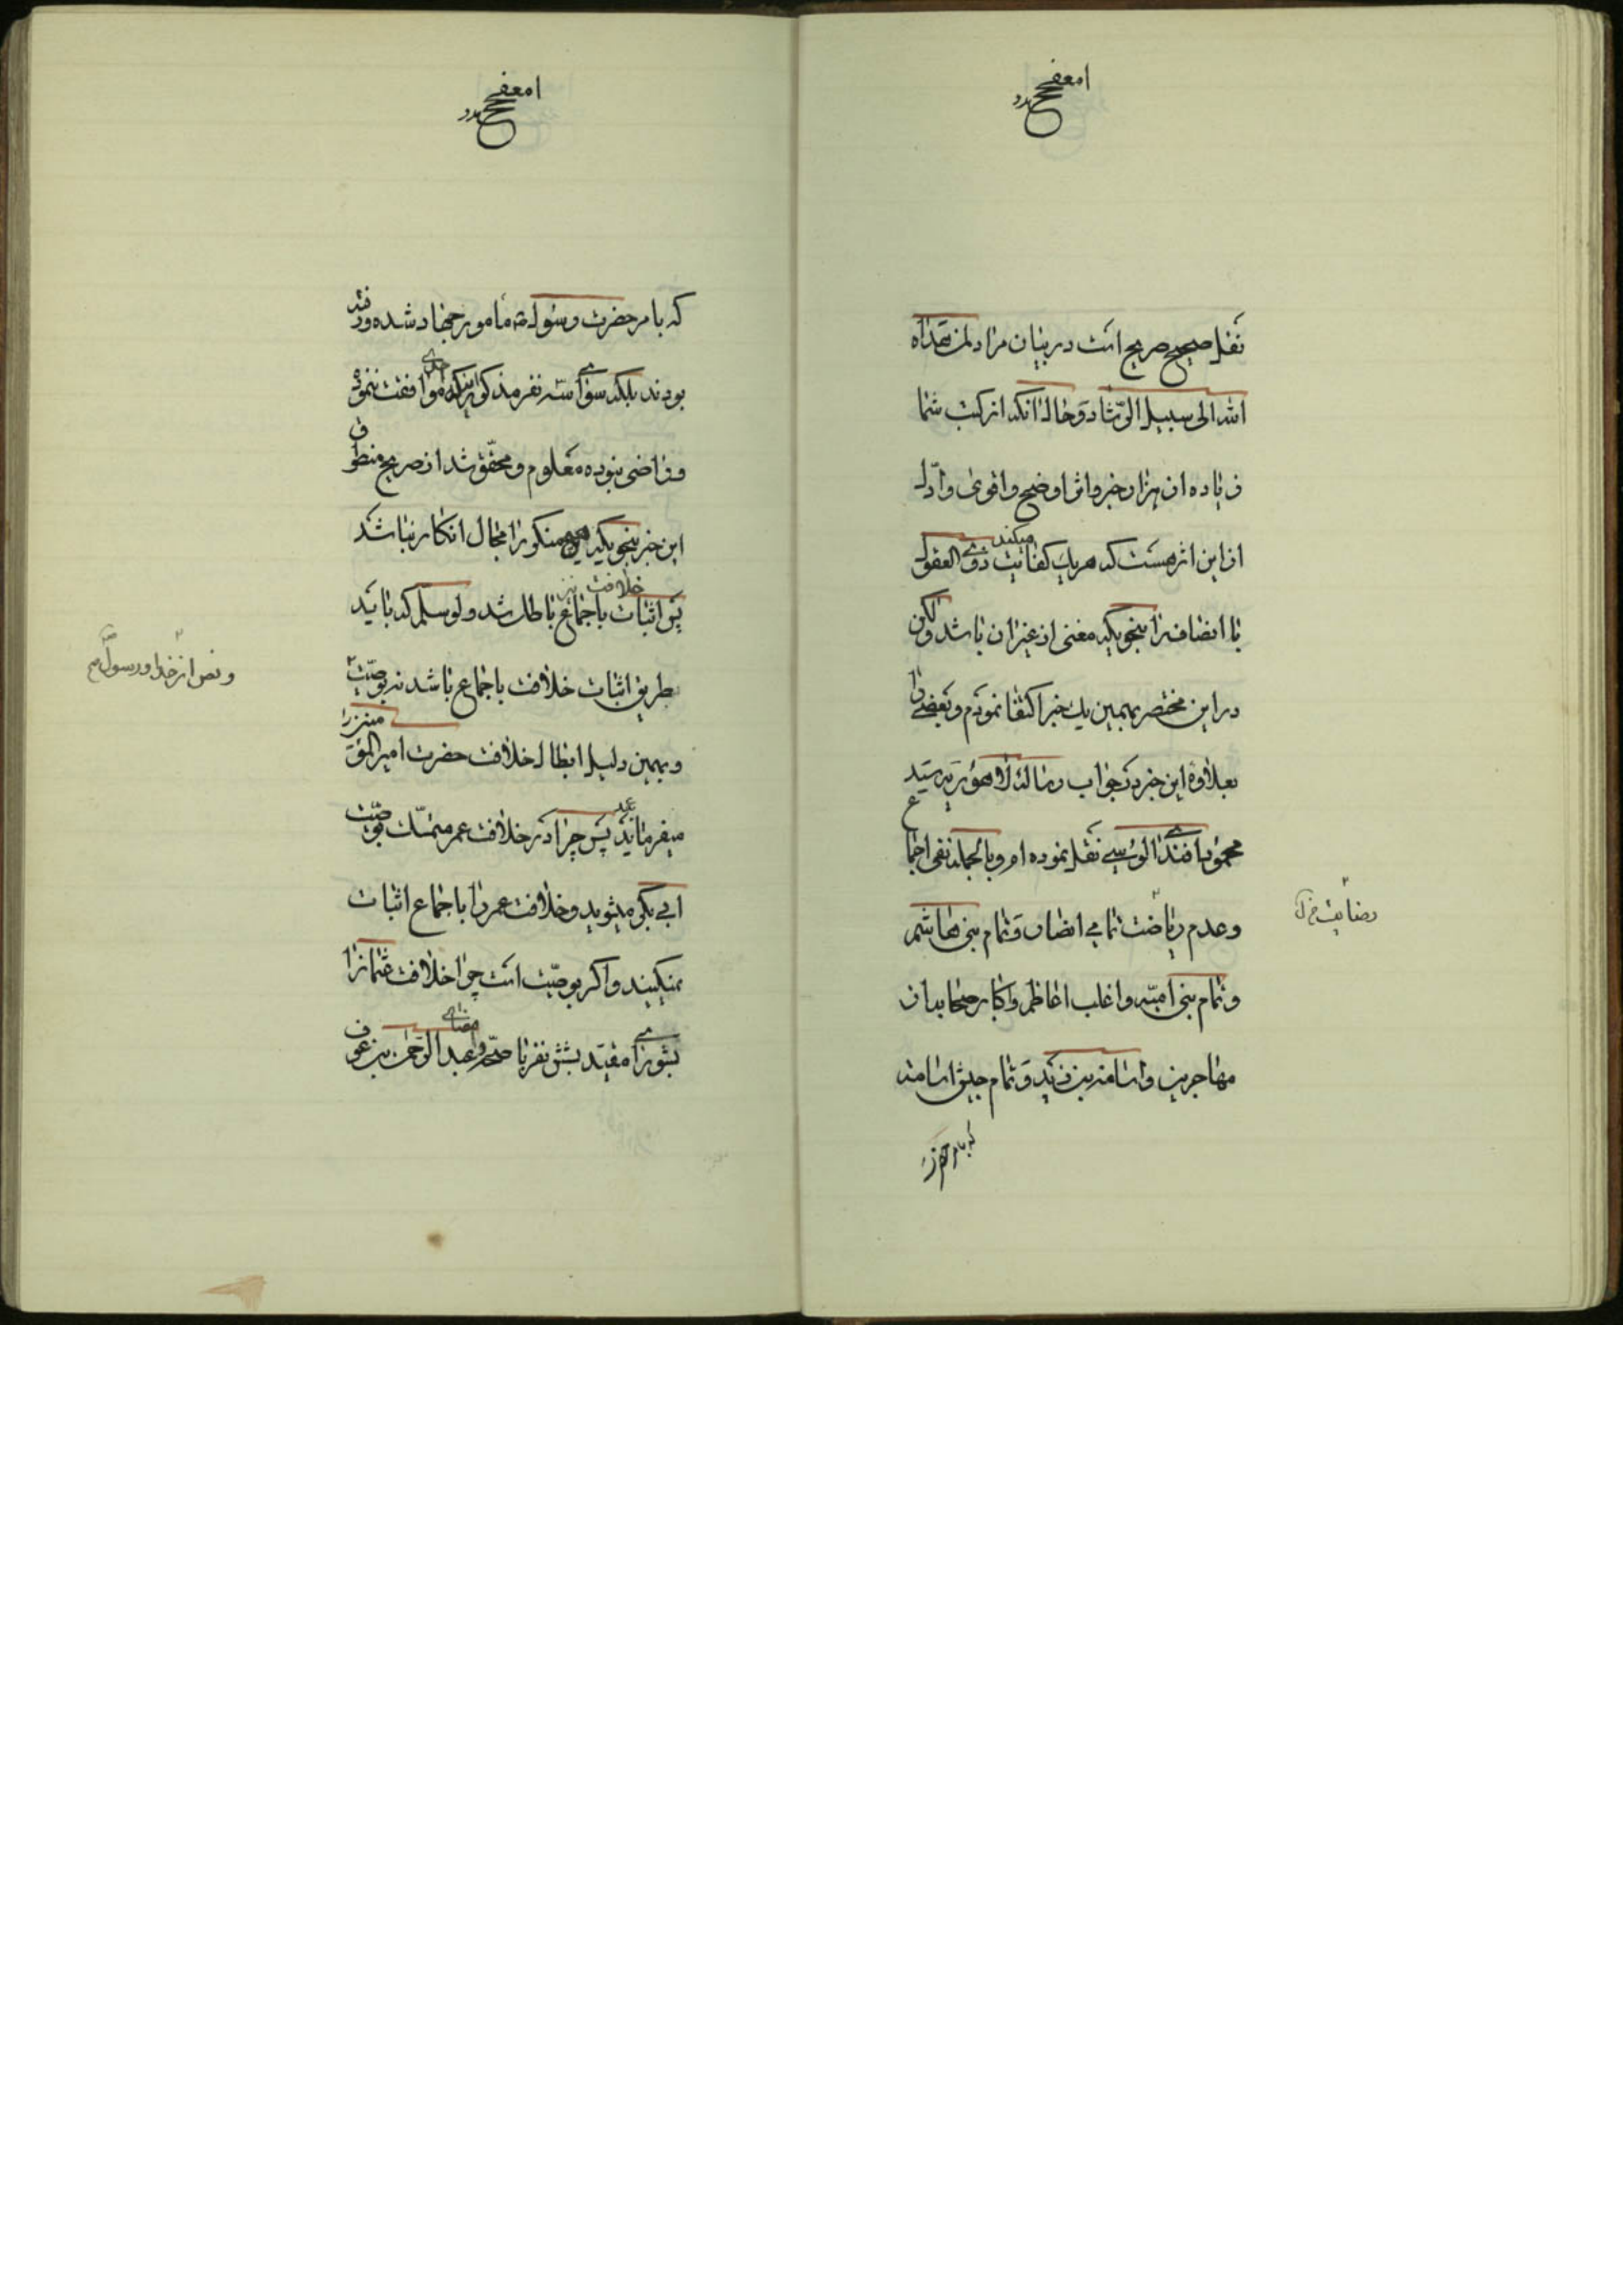 نقل صحیح صریح است در بیان مراد لمن هداه
الله الی سبیل الرشاد و حال آنکه از کتب شما
زیاده از هزار خبر و اثر اوضح و اقوی و ادل
از این اثر هست که هر یک کفایت میکند ذوی العقول
با انصاف را بنحویکه مغنی از غیر آن باشد ولکن
در این مختصر بهمین یک خبر اکتفا نمودم و بعضی را
بعلاوه این خبر در جواب رساله لاهوریه سید
محمود افندی الوسی نقل نموده‌ام و بالجمله نفی اجماع
و عدم رضایت تمامی انصار و تمام بنی هاشم
و تمام بنی امیه و اغلب اعاظم و اکابر صحابه از
مهاجرین و اسامة بن زید و تمام جیش اسامه
رضایت
که بامر حضرت رسول ص مامور بجهاد شده و رفته
بودند بلکه سوای سه نفر مذکور اینکه احدی موافقت ننموده
و راضی نبوده معلوم و محقق شد از صریح منطوق
این خبر بنحویکه هیچ منکر را مجال انکار نباشد
پس اثبات خلافت باجماع باطل شد و لو سلم که باید
طریق اثبات خلافت باجماع باشد نه بوصیت
و نص از خدا و رسول ص
و بهمین دلیل ابطال خلافت حضرت امیرالمؤمنین را
میفرمائید پس چرا در خلافت عمر متمسک بوصیت
ابی بکر میشوید و خلافت عمر را باجماع اثبات
نمیکنید و اگر بوصیت است چرا خلافت عثمان را
بشوری مقید بشش نفر با رضای عبد الرحمن بن عوف